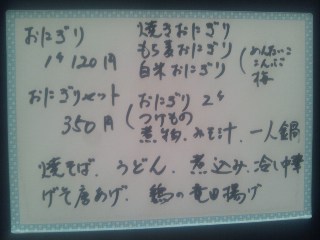 おにぎり
1ケ 120円
焼きおにぎり
もち麦おにぎり
白米おにぎり
めんたいこ
こんぶ
梅
おにぎりセット
350円
おにぎり 2ケ
つけもの
煮物、みそ汁、一人鍋
焼そば、うどん、煮込み、冷し中華
げそ唐あげ、鶏の竜田揚げ